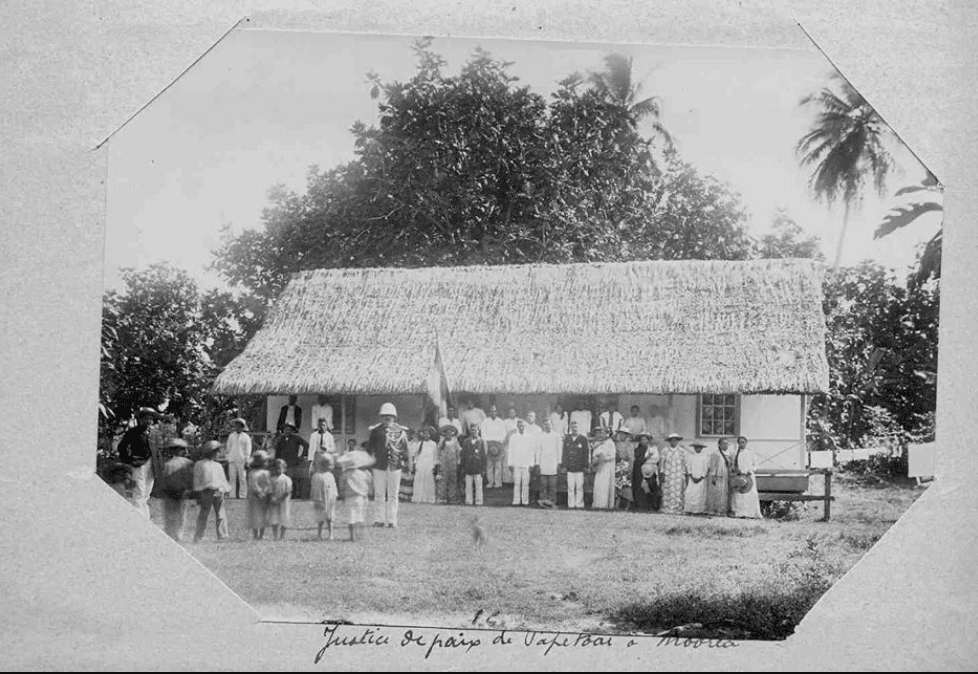 16
Justice de paix de Papetoai à Moorea